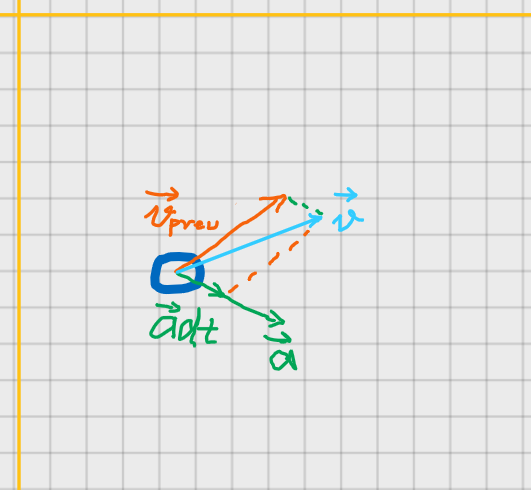 v⃗prev
v⃗
a⃗dt
a⃗